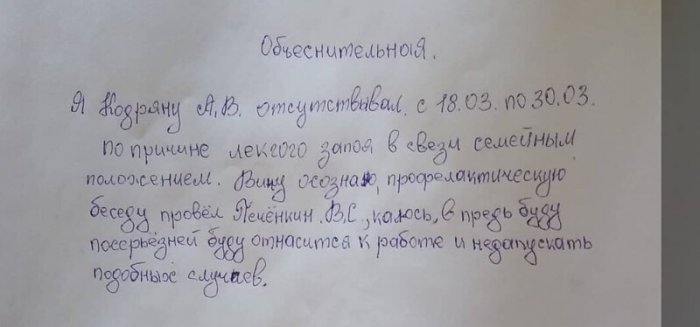 Объеснительная.
Я Кодряну А.В. отсутствывал с 18.03. по 30.03.
по причине лекгого запоя в свези семейным
положением. Вину осознаю, профелактическую
беседу провёл Печёнкин В.С, каюсь, в предь буду
посерьёзней буду отнасится к работе и недапускать
подобных случаев.